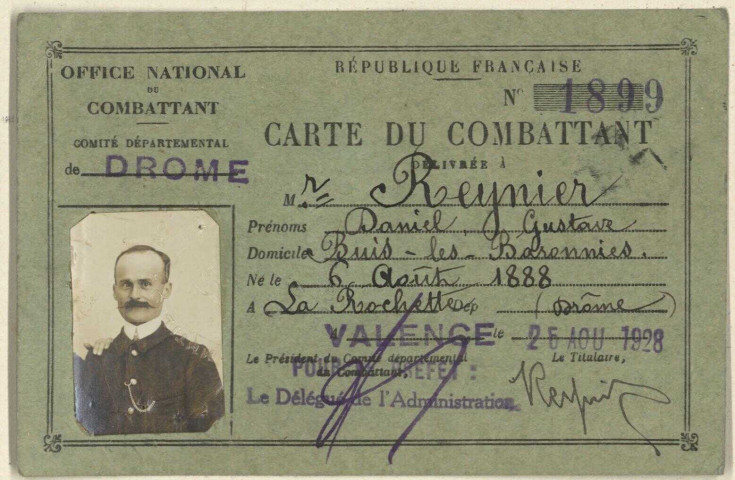 OFFICE NATIONAL
DU
COMBATTANT
COMITÉ DÉPARTEMENTAL
de DROME
RÉPUBLIQUE FRANÇAISE
N° 1899
CARTE DU COMBATTANT
DÉLIVRÉE À
Mr Reynier
Prénoms Daniel, Gustave
Domicile Buis-les-Baronnies.
Né le 6 Août 1888
A La Rochette Dép (Drôme)
VALENCE le 25 AOU 1928
Le Président du Comité départemental
du Combattant,
Le Titulaire,
POUR LE PREFET :
Le Délégué de l'Administration
Reynier